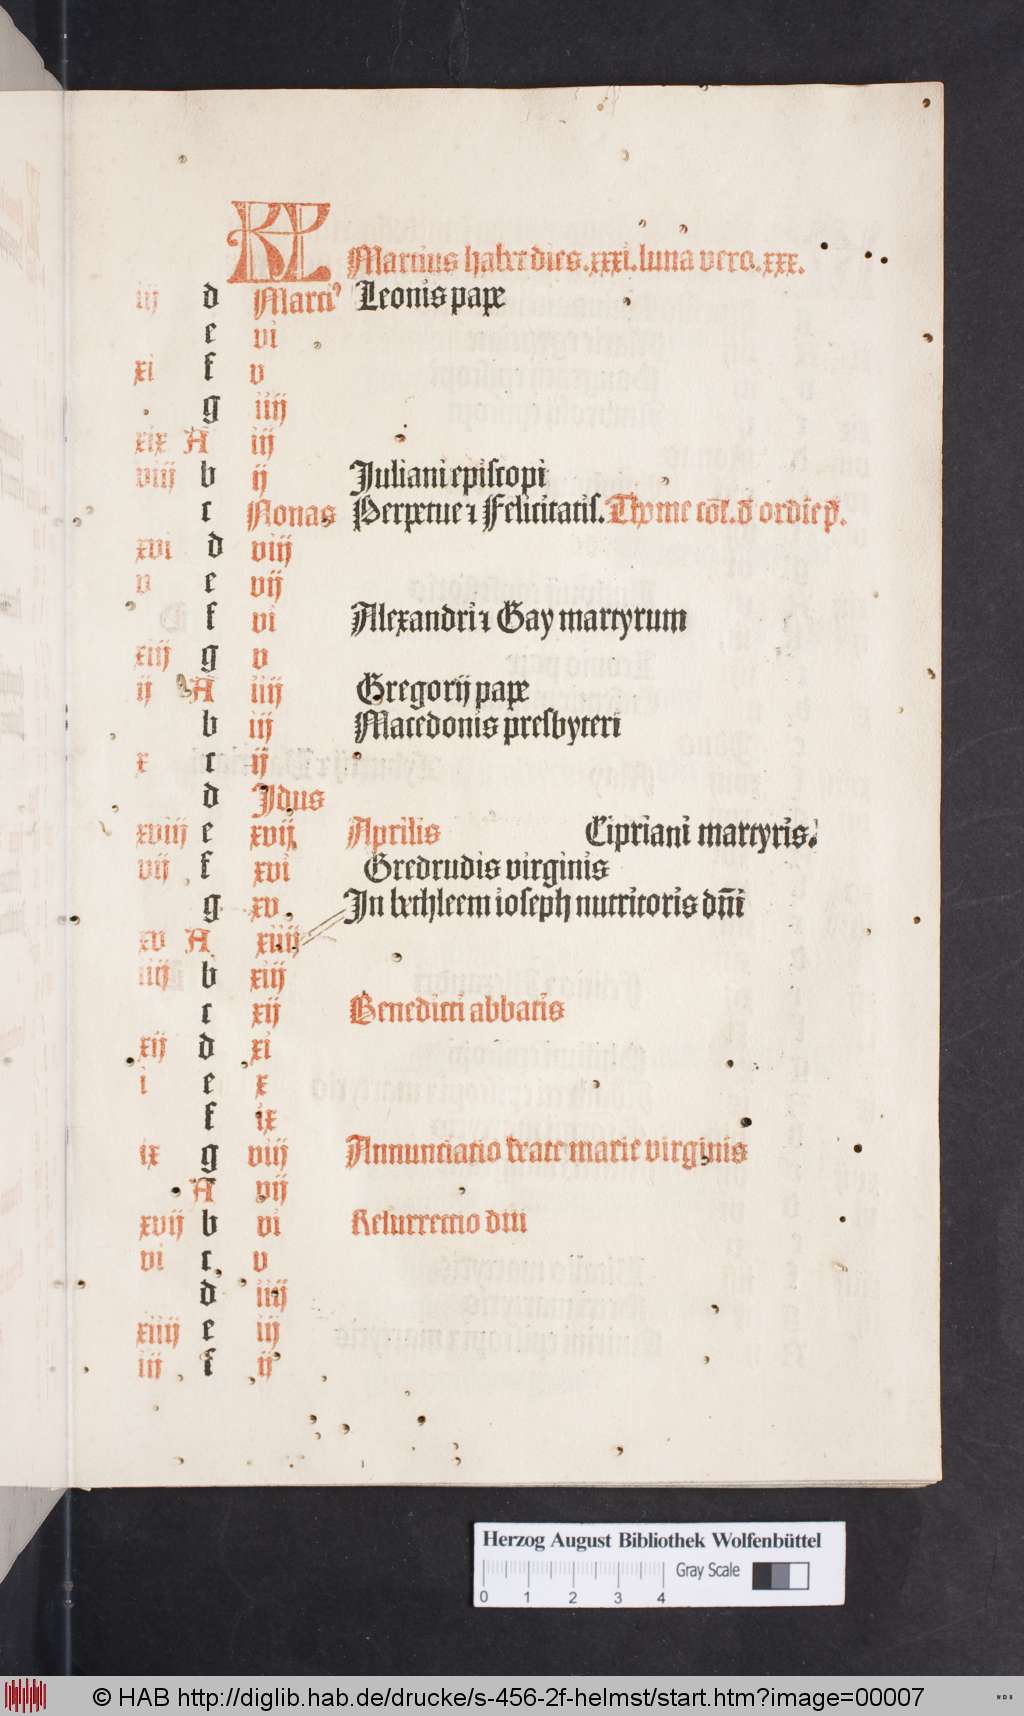 KL Martius habet dies.xxxi.luna vero.xxx.
iij d Marcij Leonis pape
e vi
xi f v
g iiij
xix A iij
viij b ij Juliani episcopi
c Nonas Perpetue ⁊ Felicitatis. Thome cōf. d̄ ordīe p̄.
xvi d viij
v e vij
f vi Alexandri ⁊ Gay martyrum
xiij g v
ij A iiij Gregorij pape
b iij Macedonis presbyteri
x c ij
d Jdus
xviij e xvij Aprilis Cipriani martyris.
vij f xvi Gredrudis virginis
g xv Jn bethleem ioseph nutritoris dn̄i
xv A xiiij
iiij b xiij
c xij Benedicti abbatis
xij d xi
i e x
f ix
ix g viij Annunciatio beate marie virginis
A vij
xvij b vi Resurrectio dn̄i
vi c v
d iiij
xiiij e iij
iij f ij
Herzog August Bibliothek Wolfenbüttel
Gray Scale
0 1 2 3 4
© HAB http://diglib.hab.de/drucke/s-456-2f-helmst/start.htm?image=00007